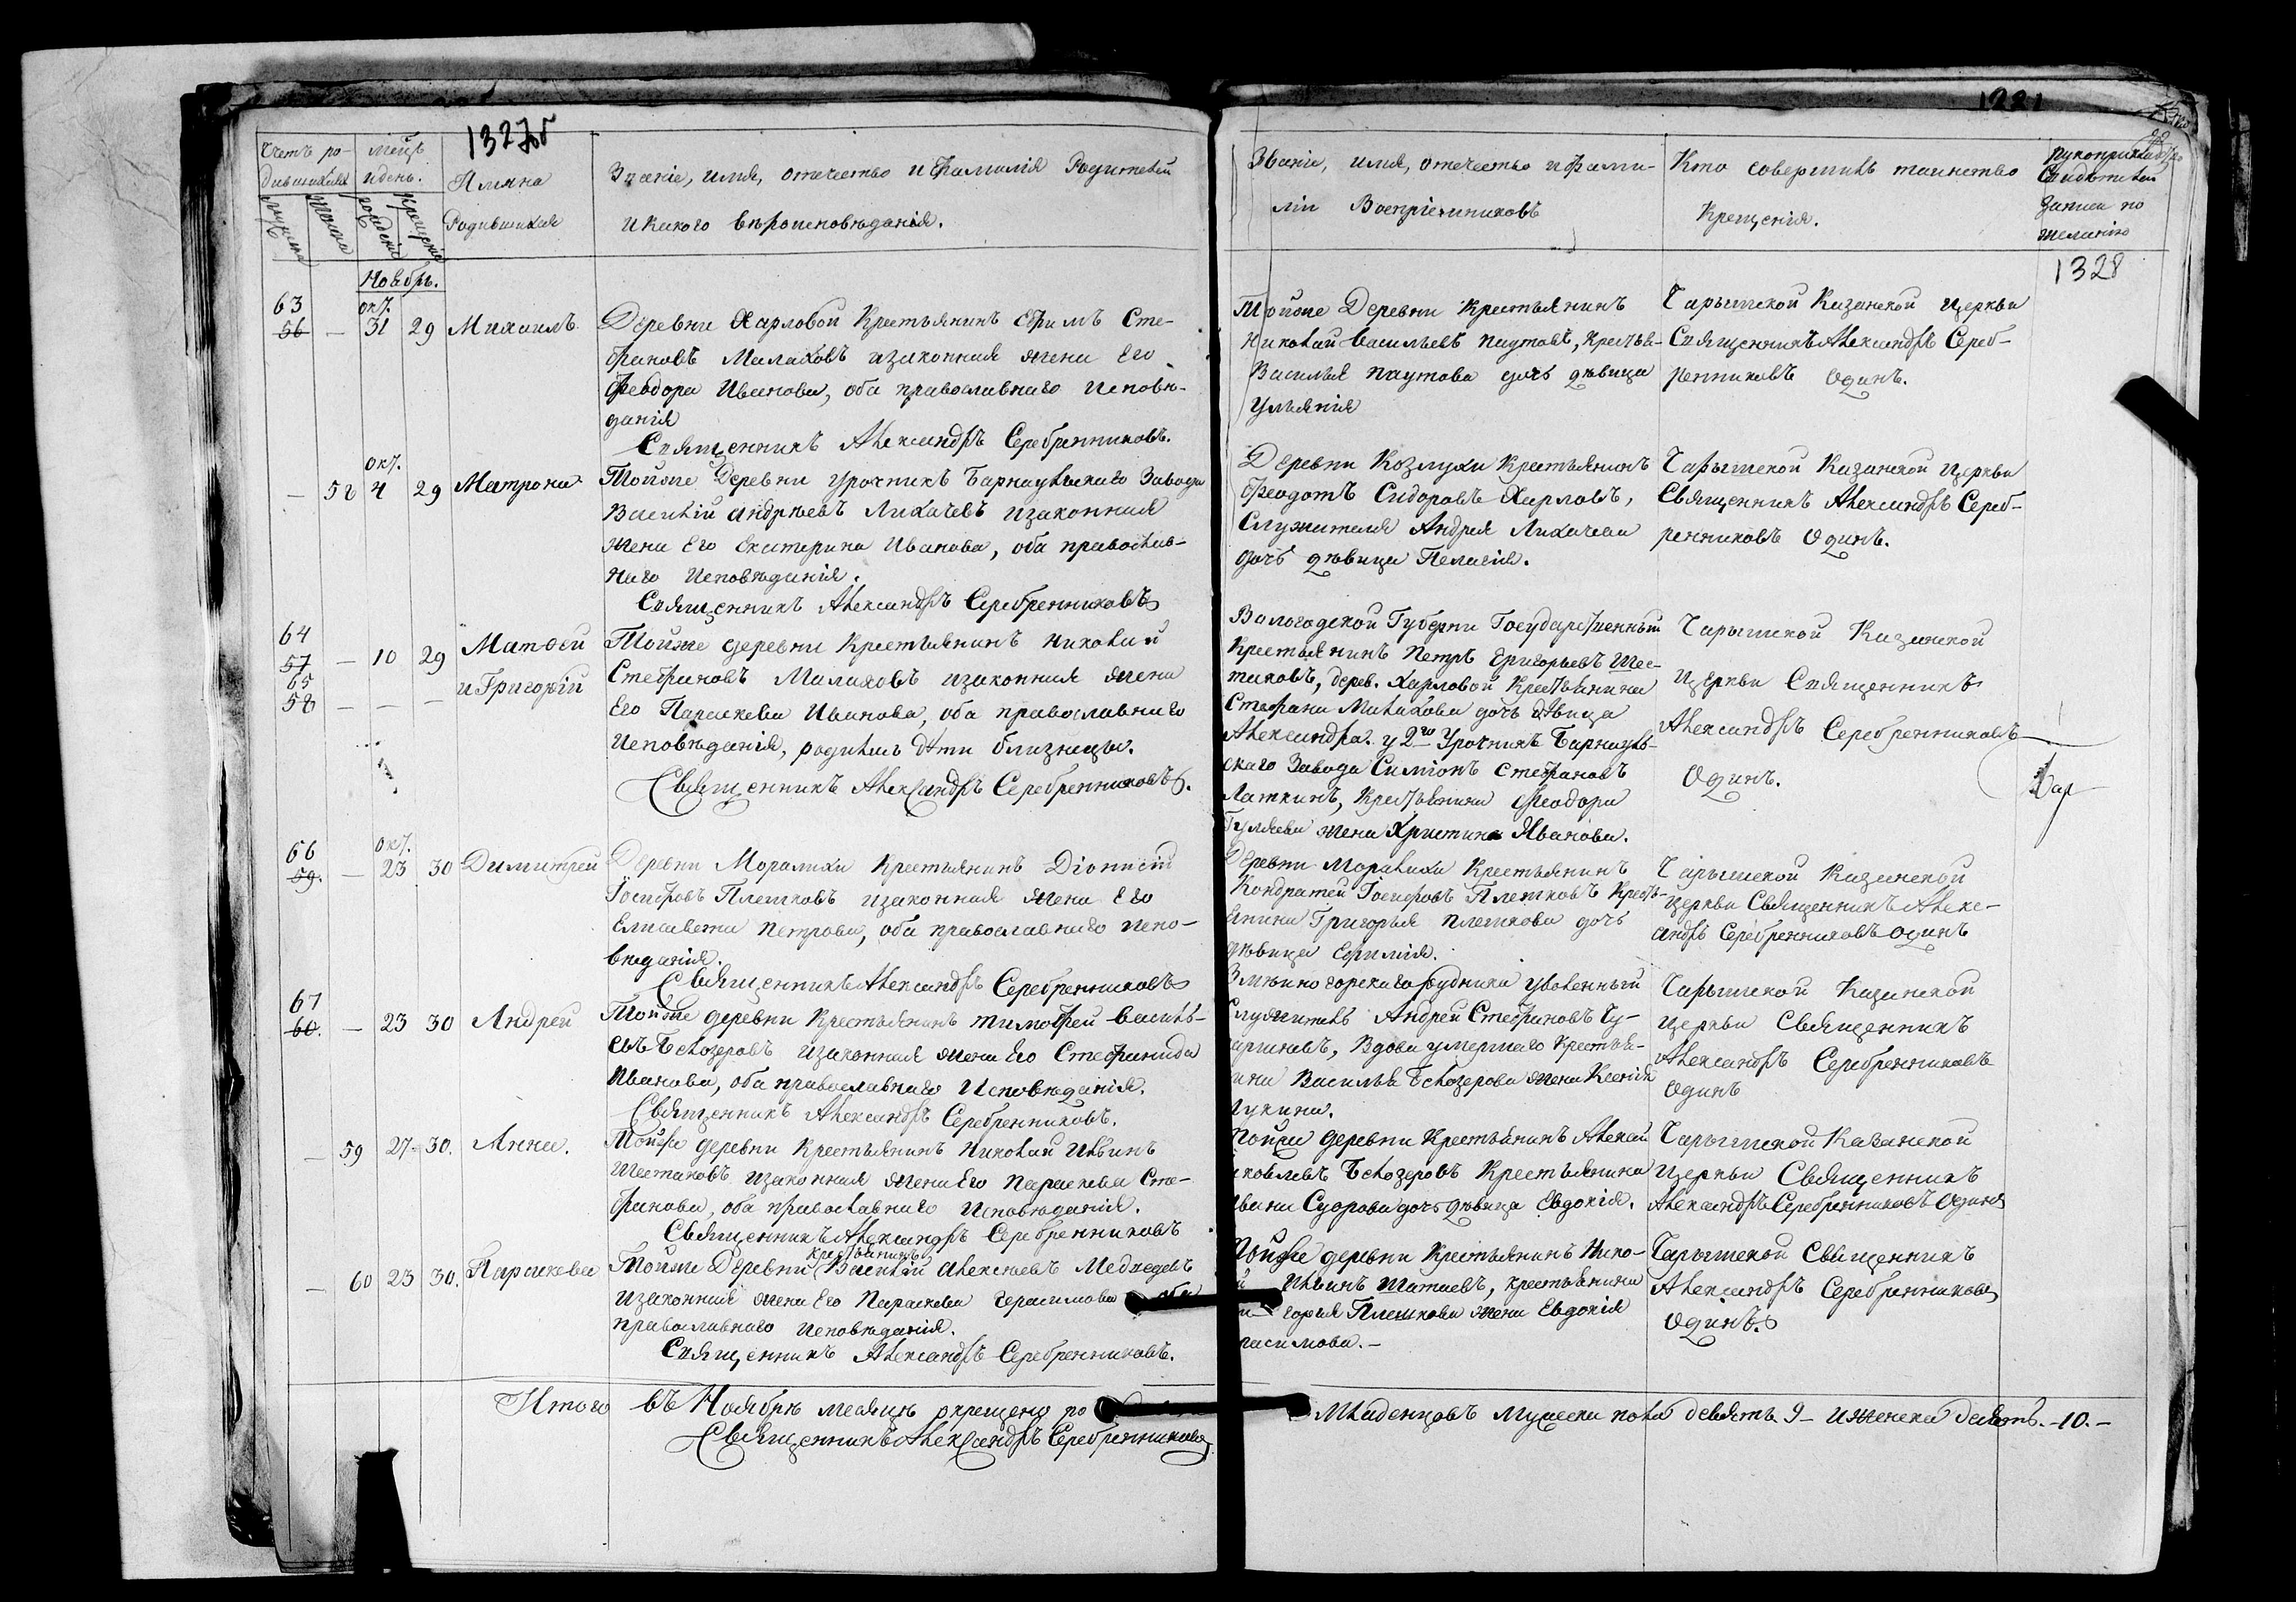 1327об
Счетъ ро-
дившихся
Мѣсяцъ
и день.
Имяна
Родившихся
Званіе, имя, отечество и Фамилія Родителей
и какого вѣроисповѣданія.
Ноябрь.
63
окт.
56 — 31 29 Михаилъ
Деревни Харловой Крестьянинъ Ефимъ Сте-
фановъ Малаховъ изаконная жена Его
Феодора Иванова, оба православнаго исповѣ-
данія
Священникъ Александръ Серебренниковъ.
окт.
— 58 4 29 Матрона
Тойже Деревни урочникъ Барнаульскаго Завода
Василій Андреевъ Лихачевъ изаконная
жена Его Екатерина Иванова, оба православ-
наго исповѣданія.
Священникъ Александръ Серебренниковъ
64
57 — 10 29 Матѳей
65
58 — — — и Григорій
Тойже деревни Крестьянинъ Николай
Стефановъ Малаховъ изаконная жена
Его Параскева Иванова, оба православнаго
исповѣданія, родились дѣти близнецы.
Священникъ Александръ Серебренниковъ.
66
окт.
59. — 23 30 Димитрей
Деревни Моралихи Крестьянинъ Діонисій
Іосифовъ Плешковъ изаконная жена Его
Елисавета Петрова, оба православнаго испо-
вѣданія.
Священникъ Александръ Серебренниковъ
67
60. — 23 30 Андрей
Тойже деревни Крестьянинъ Тимофей Василь-
евъ Бѣлозеровъ изаконная жена Его Стефанида
Иванова, оба православнаго исповѣданія.
Священникъ Александръ Серебренниковъ.
— 59 27 30. Анна.
Тойже деревни Крестьянинъ Николай Ильинъ
Шестаковъ изаконная жена Его Параскева Сте-
фанова, оба православнаго исповѣданія.
Священникъ Александръ Серебренниковъ
крестьянинъ
— 60 23 30. Параскева
Тойже Деревни Василій Алексеевъ Медведевъ
изаконная жена Его Параскева Герасимова оба
православнаго исповѣданія.
Священникъ Александръ Серебренниковъ.
Итого въ Ноябрѣ месяцѣ окрещено
Священникъ Александръ Серебренниковъ
1328
Званіе, имя, отечество и фами-
ліи Воспріемниковъ
Кто совершилъ таинство
Крещенія.
Свидѣтелей
записи по
желанію
Тойже Деревни Крестьянинъ
Николай Васильевъ Паутовъ, Крестья-
Василья Паутова дочь дѣвица
Ульянія
Чарышской Казанской Церкви
Священникъ Александръ Сереб-
ренниковъ Одинъ.
Деревни Козлухи Крестьянинъ
Феодотъ Сидоровъ Харловъ,
Служителя Андрея Лихачева
дочь дѣвица Пелагія.
Чарышской Казанской Церкви
Священникъ Александръ Сереб-
ренниковъ Одинъ.
Вологодской Губерни Государственный
Крестьянинъ Петръ Григорьевъ Шес-
таковъ, дерев. Харловой Крестьянина
Стефана Малахова дочь дѣвица
Александра. у 2го Урочникъ Барнауль-
скаго Завода Симіонъ Стефановъ
Латкинъ, Крестьянина Феодора
Гуляева жена Христина Иванова.
Чарышской Казанской
Церкви Священникъ
Александръ Серебренниковъ
Одинъ.
Деревни Моралихи Крестьянинъ
Кондратей Іосифовъ Плешковъ Кресть-
янина Григорья Плешкова дочь
дѣвица Ефимія.
Чарышской Казанской
Церкви Священникъ Алекс-
андръ Серебренниковъ Одинъ
Змѣиногорскаго рудника уволенный
Служитель Андрей Стефановъ Чу-
Вдова умершаго Крестья-
нина Василья Бѣлозерова жена Ксенія
Лукина.
Чарышской Казанской
Церкви Священникъ
Александръ Серебренниковъ
Одинъ
Тойже деревни Крестьянинъ Алексей
Яковлевъ Бѣлозеровъ Крестьянина
Ивана Суорова дочь дѣвица Евдокія.
Чарышской Казанской
Церкви Священникъ
Александръ Серебренниковъ Одинъ
Тойже деревни Крестьянинъ Нико-
Ильинъ крестьянина
горья Плешкова жена Евдокія
расимова. —
Чарышской Священникъ
Александръ Серебренниковъ
Одинъ.
Младенцовъ Мужеска пола девять 9 — и женска десять. — 10. —